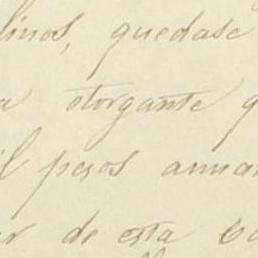 linos, quedase
a otorgante q
il pesos anua
ar de esta